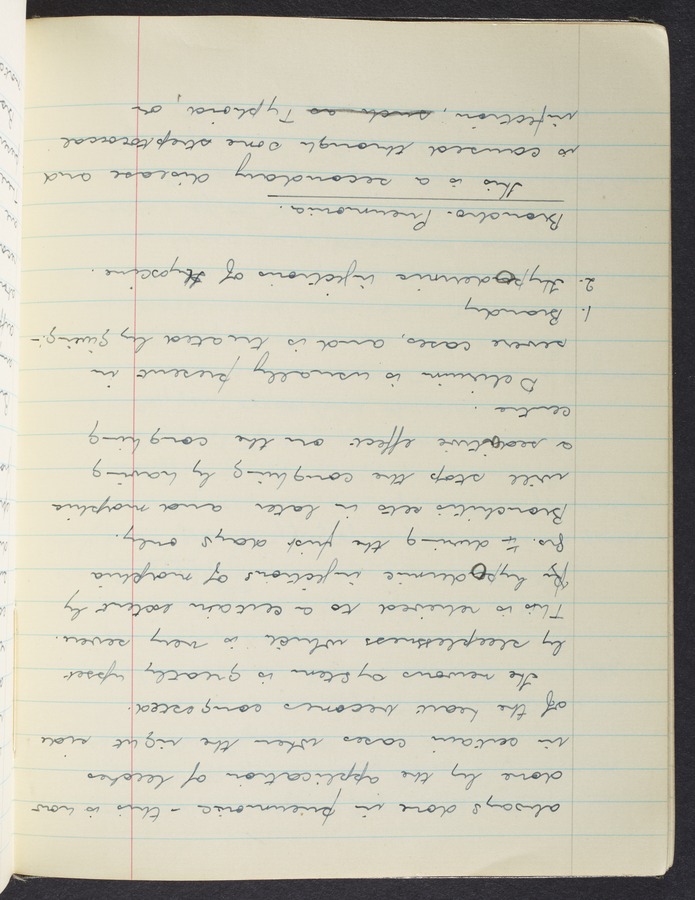 always done in pneumonia - this is now
done by the application of leeches
in certain cases when the right side
of the heart becomes congested.
The nervous system is greatly upset
by sleeplessness which is very severe.
This is relieved to a certain extent by
hypodermic injections of morphia
grs. ¼ during the first days only.
Bronchitis sets in later and morphia
will stop the coughing by having
a sedative effect on the coughing
centre.
Delirium is usually present in
severe cases, and is treated by giving:-
1. Brandy
2. Hypodermic injections of Hyoscine.
Broncho-Pneumonia.
this is a secondary disease and
is caused through some streptococcal
infection, such as Typhoid, or